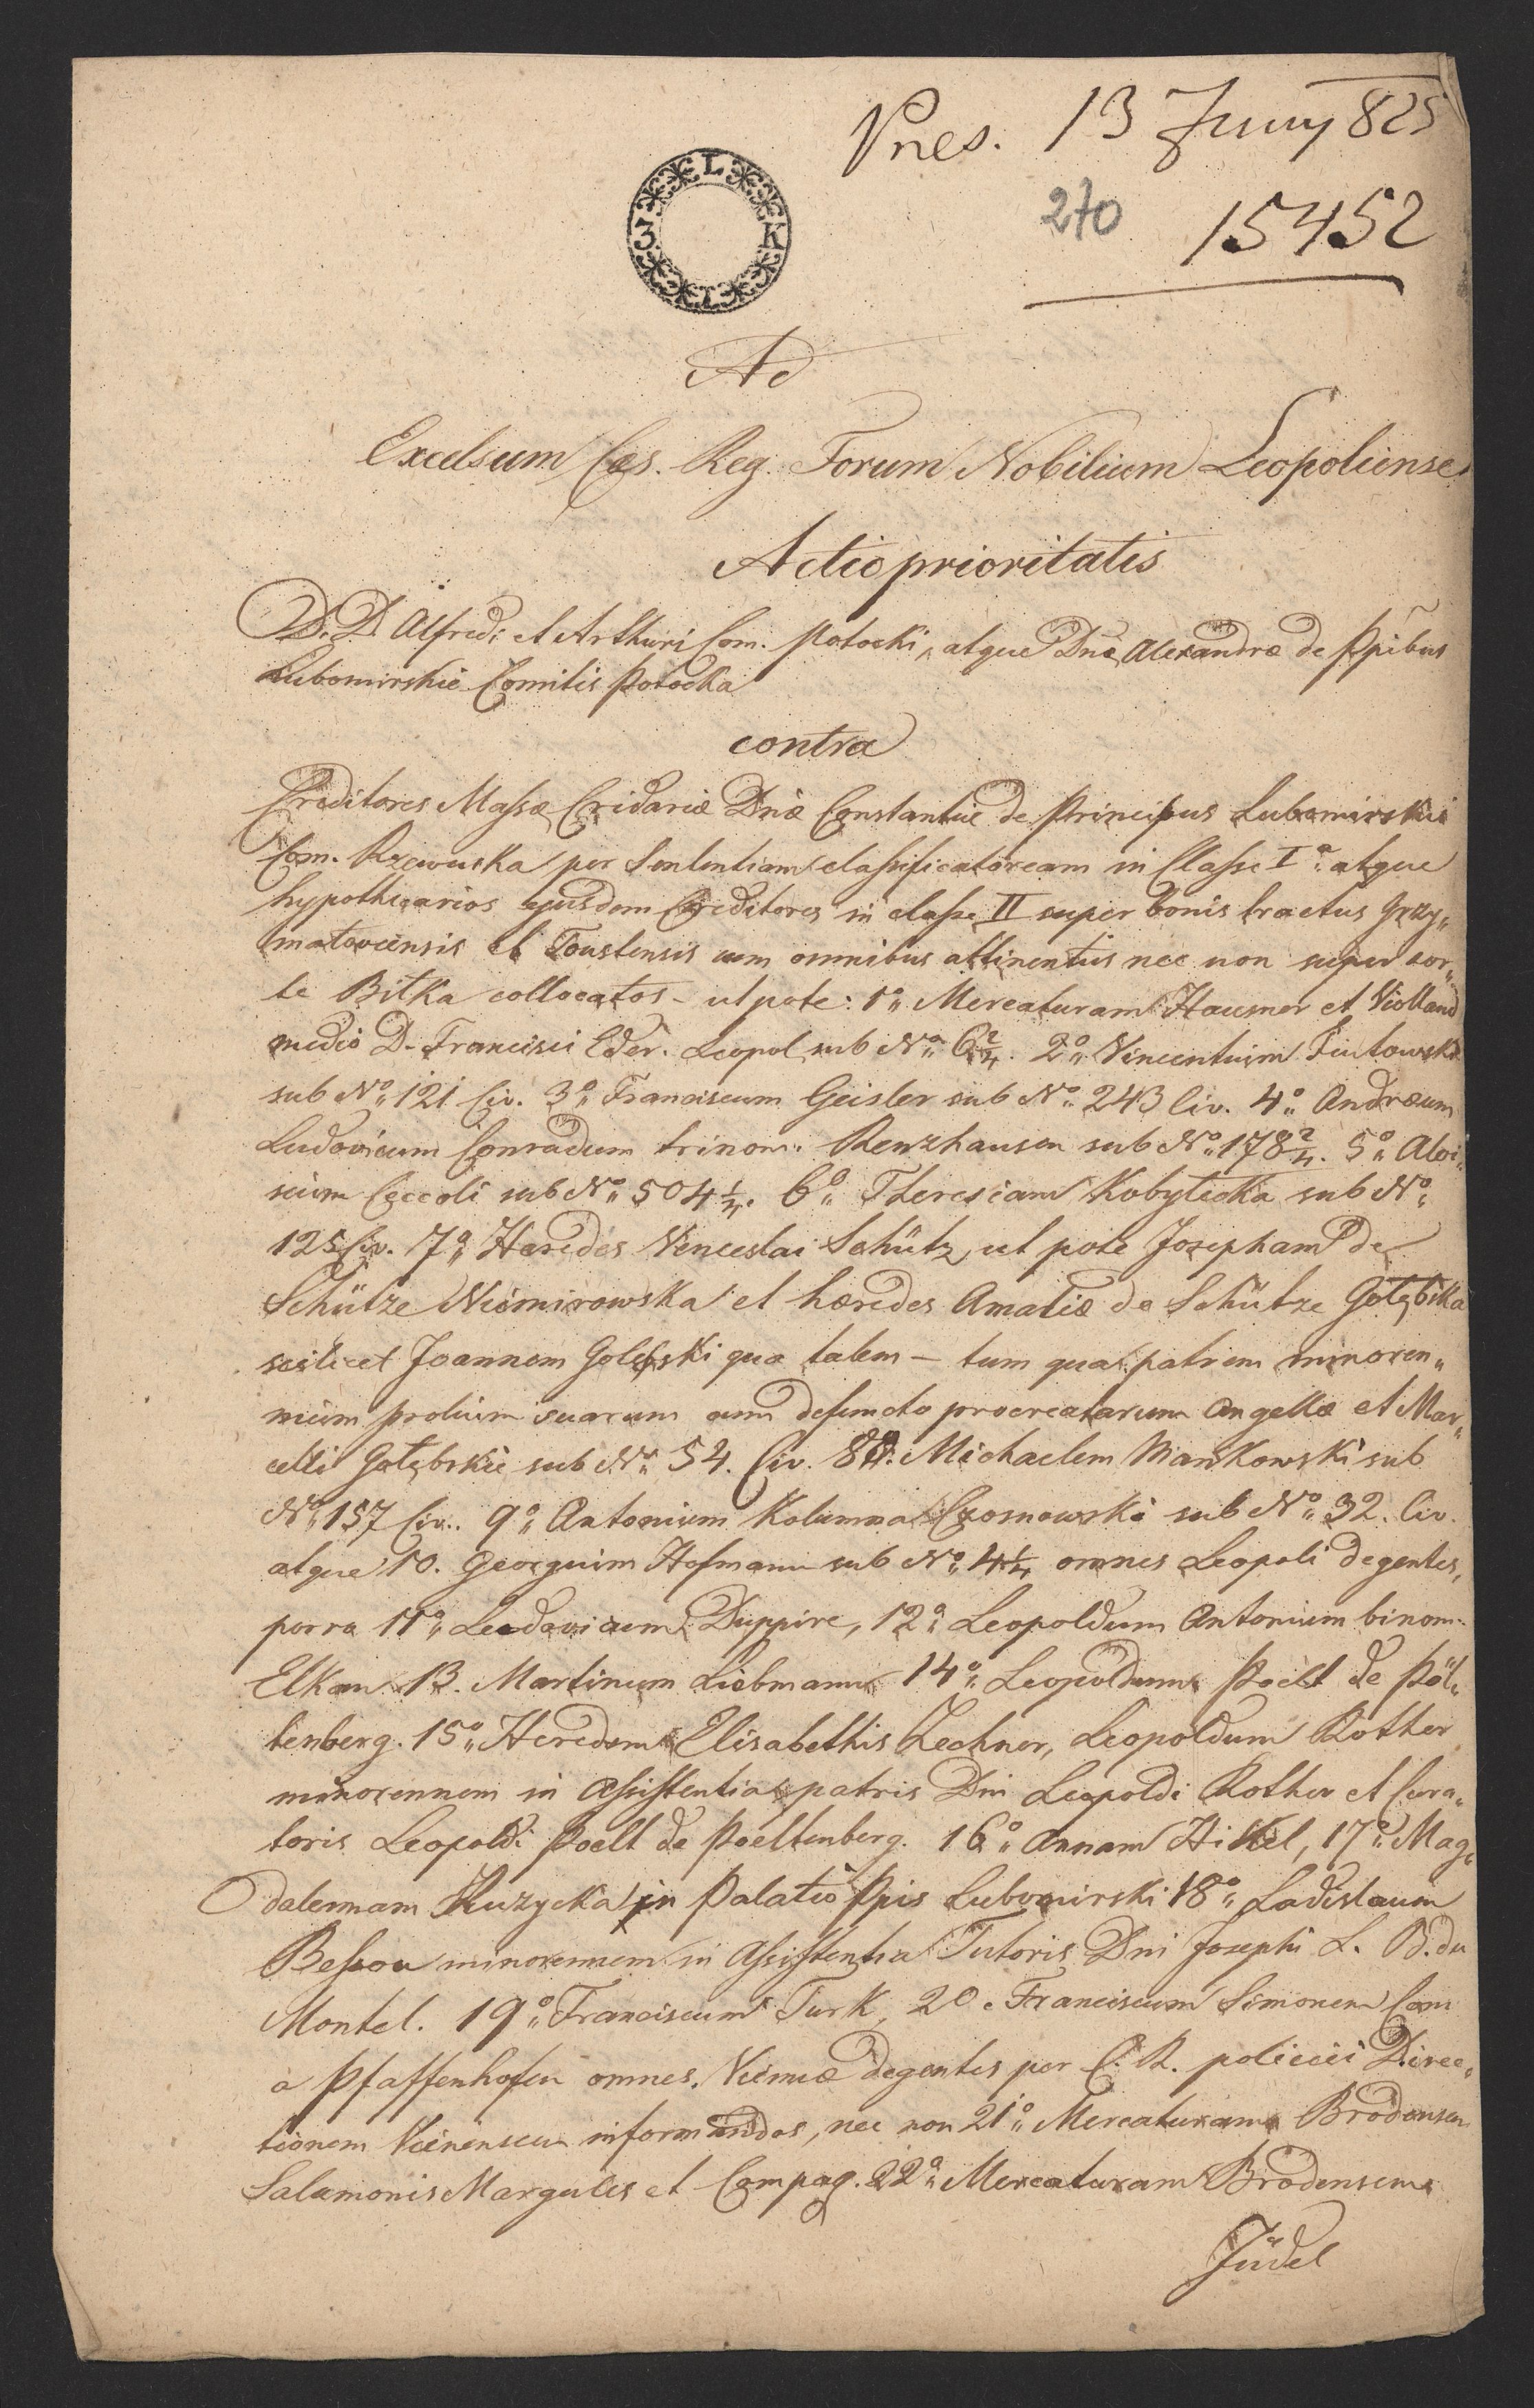 Pres. 13 Juny 825
270 15452
3 L K I
Ad
Excelsum Ces. Reg. Forum Nobilium Leopoliense
Actio prioritatis
D. D. Alfredi et Arthuri Com. Potocki, atque Dnæ Alexandræ de Ppibus
Lubomirskie Comitis Potocka
contra
Creditores Massæ Cridariæ Dnæ Constantiæ de Principus Lubomirskie
Com. Rzewuska per Sententiam classificatoream in Classe Iª. atque
hypothecarios ejusdem Creditores in classe II super bonis tractus Grzy„
matoviensis et Toustensis cum omnibus attinentiis nec non super sor„
te Bitka collocatos - utpote: 1º„ Mercaturam Hausner et Violland
medio D. Francisci Eder. Leopol sub Nº„ 6 2/4. 2º„ Vincentium Fiutowski
sub Nº„ 121 Civ. 3º„ Franciscum Geisler sub Nº„ 243 Civ. 4º„ Andræum
Ludovicum Conradum trinom: Renzhausen sub Nº„ 178 2/4. 5º„ Aloi„
sium Ceccoli sub Nº„ 504 1/4. 6º„ Theresiam Kobytecka sub Nº„
125 Civ. 7º„ Heredes Venceslai Schütz, ut pote Josepham de
Schütze Niemirowska et hæredes Amaliæ de Schütze Gotębska
scilicet Joannem Golębski qua talem - tum qua patrem minoren„
nium prolium suarum cum defuncto procreatarum Angellæ et Mar„
celli Gotębskie sub Nº„ 54. Civ. 8º„ Michaelem Mankowski sub
Nº„ 157 Civ. 9º„ Antonium Kolumna Czosnowski sub Nº„ 32. Civ.
atque 10. Georgium Hofmann sub Nº„ 4 1/4 omnes Leopoli degentes,
porro 11º„ Ludovicum Duppire, 12º„ Leopoldum Antonium binom:
Elkan 13. Martinum Liebmann 14º„ Leopoldum Poelt de Pöl„
tenberg. 15º„ Heredem Elisabethis Zechner, Leopoldum Rother
minorennem in Assistentia patris Dni Leopoldi Rother et Cura„
toris Leopoldi Poelt de Poeltenberg. 16º„ Annam Hikel, 17º„ Mag„
dalennam Ruzycka in Palatio Ppis Lubomirski 18º„ Ladislaum
Besson minorennem in Assistentia Tutoris Dni Josephi L. B. du
Montel. 19º„ Franciscum Turk, 20. Franciscum Simonem Com
a Pfaffenhofen omnes Viennæ degentes per C. R. policiei Direc„
tionem Vienensem informandos, nec non 21º„ Mercaturam Brodensem
Salamonis Margules et Compag. 22º„ Mercaturam Brodensem
Jüdel